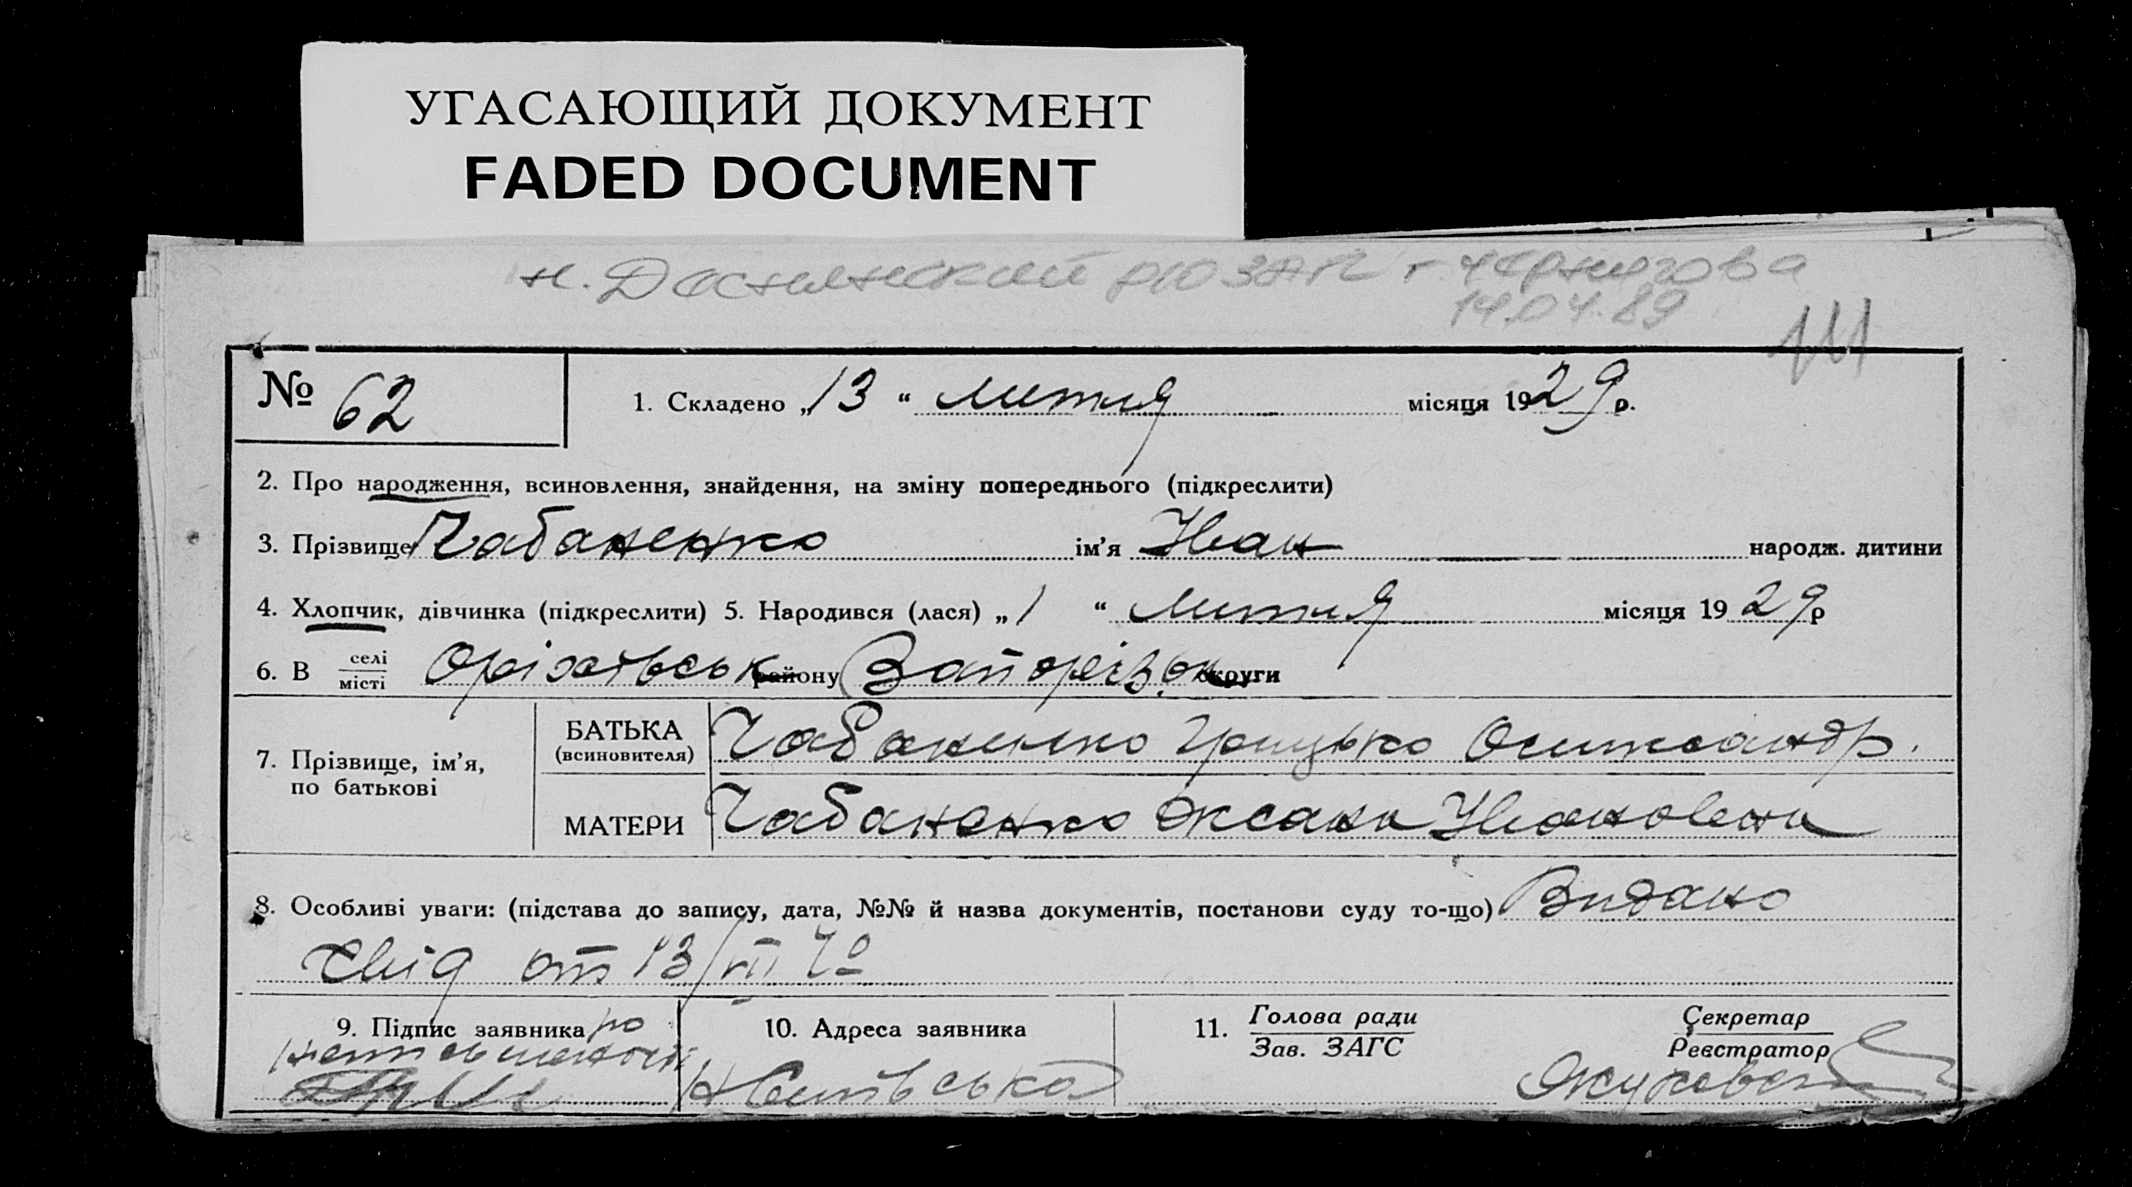 УГАСАЮЩИЙ ДОКУМЕНТ
FADED DOCUMENT
н. Деснянский рю ЗАГС г. Чернигова
14.04.89
№ 62
1. Складено „13“ лютля місяця 1929 р.
2. Про народження, всиновлення, знайдення, на зміну попереднього (підкреслити)
3. Прізвище Чабаненко ім’я Іван народж. дитини
4. Хлопчик, дівчинка (підкреслити) 5. Народився (лася) „1“ лютля місяця 1929 р
6. В селі місті Оріхівськ району Запорізьк округи
7. Прізвище, ім’я, по батькові
БАТЬКА (всиновителя) Чабаненко Грицько Олександр.
МАТЕРИ Чабаненко Оксана Ивановна
8. Особливі уваги: (підстава до запису, дата, №№ й назва документів, постанови суду то-що) Видано
свід от 13/VII
9. Підпис заявника по
10. Адреса заявника
11. Голова ради Зав. ЗАГС
Секретар Реєстратор